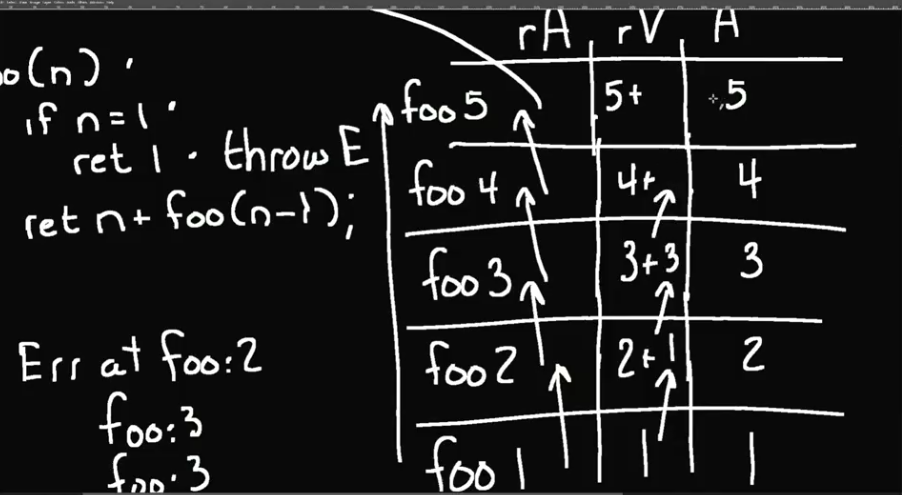 oo(n)
if n=1
ret 1 throw E
ret n+ foo(n-1);
Err at foo:2
foo:3
foo:3
rA rV A
foo 5 5+ 5
foo 4 4+ 4
foo 3 3+3 3
foo 2 2+1 2
foo 1 1 1